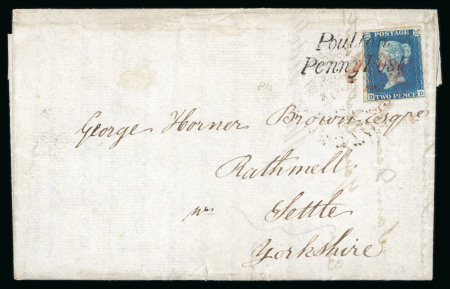 POSTAGE
TWO PENCE
Penny Post
George Horner Brown esqre
Rathmell
nr Settle
Yorkshire